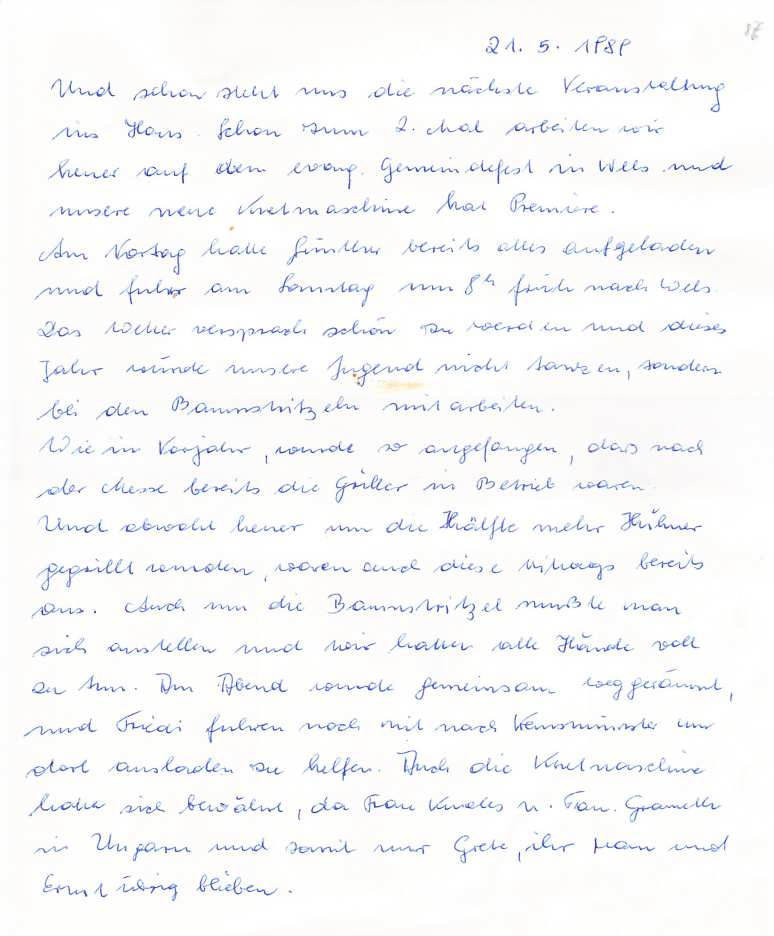 87
21. 5. 1989
Und schon steht uns die nächste Veranstaltung
ins Haus. Schon zum 2. Mal arbeiten wir
heuer auf dem evang. Gemeindefest in Wels und
unsere neue Knetmaschine hat Premiere.
Am Vortag hatte Günther bereits alles aufgeladen
und fuhr am Sonntag um 8h früh nach Wels.
Das Wetter versprach schön zu werden und dieses
Jahr würde unsere Jugend nicht tanzen, sondern
bei den Baumstritzeln mitarbeiten.
Wie im Vorjahr, wurde so angefangen, dass nach
der Messe bereits die Griller in Betrieb waren.
Und obwohl heuer um die Hälfte mehr Hühner
gegrillt wurden, waren auch diese mittags bereits
aus. Auch um die Baumstritzel mußte man
sich anstellen und wir hatten alle Hände voll
zu tun. Am Abend wurde gemeinsam weggeräumt,
und Friedi fuhren noch mit nach Kremsmünster um
dort ausladen zu helfen. Auch die Knetmaschine
hatte sich bewährt, da Frau u. Fam.
in Ungarn und somit nur Grete, ihr Mann und
Ernst übrig blieben.